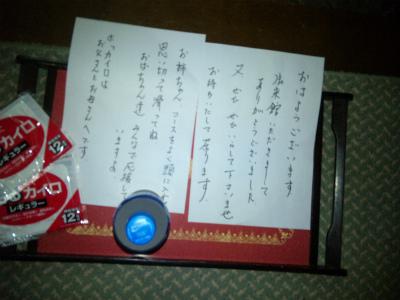 おはようございます
御来館いただきまして
ありがとうございました
又、ぜひ ぜひいらして下さいませ
お待ちいたして居ります
お姉ちゃん コースをよく頭に入れ
思い切って滑ってね
おばちゃん達 みんなで応援して
いますよ
ホッカイロは
お父さんとお母さんへです
カイロ
レギュラー
12
カイロ
レギュラー
12